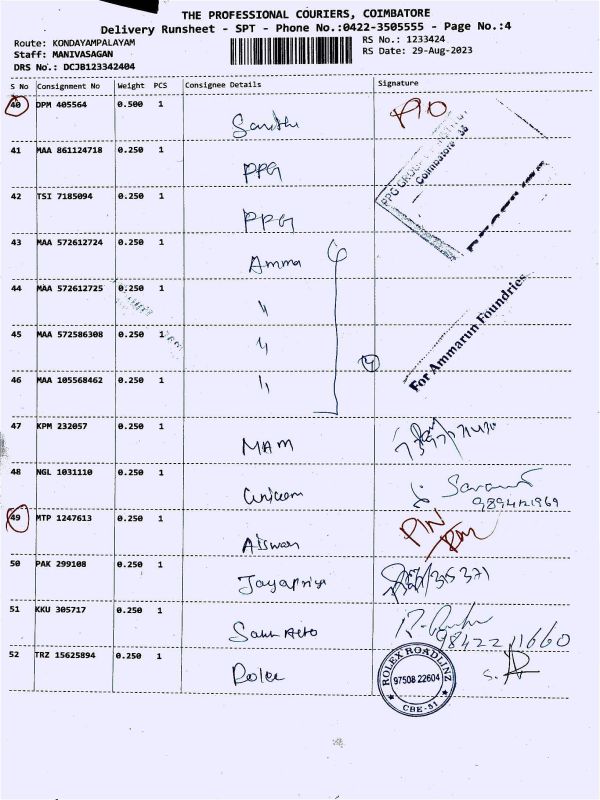 THE PROFESSIONAL COURIERS, COIMBATORE
Delivery Runsheet - SPT - Phone No.:0422-3505555 - Page No.:4
Route: KONDAYAMPALAYAM
Staff: MANIVASAGAN
DRS No.: DCJB123342404
RS No.: 1233424
RS Date: 29-Aug-2023
S No Consignment No Weight PCS Consignee Details Signature
40 DPM 405564 0.500 1
41 MAA 861124718 0.250 1 PPG
PPG Coimbatore - 35
42 TSI 7185094 0.250 1 PPG
43 MAA 572612724 0.250 1 Amma
44 MAA 572612725 0.250 1 "
45 MAA 572586308 0.250 1 "
46 MAA 105568462 0.250 1 "
4
For Ammarun Foundries
47 KPM 232057 0.250 1 MAM
48 NGL 1031110 0.250 1 Saravan
9894121969
49 MTP 1247613 0.250 1 Aiswar PIN
50 PAK 299108 0.250 1 Jayapriya
51 KKU 305717 0.250 1
98422 11660
52 TRZ 15625894 0.250 1 Rolex
ROLEX ROADLINZ
97508 22604
CBE-51